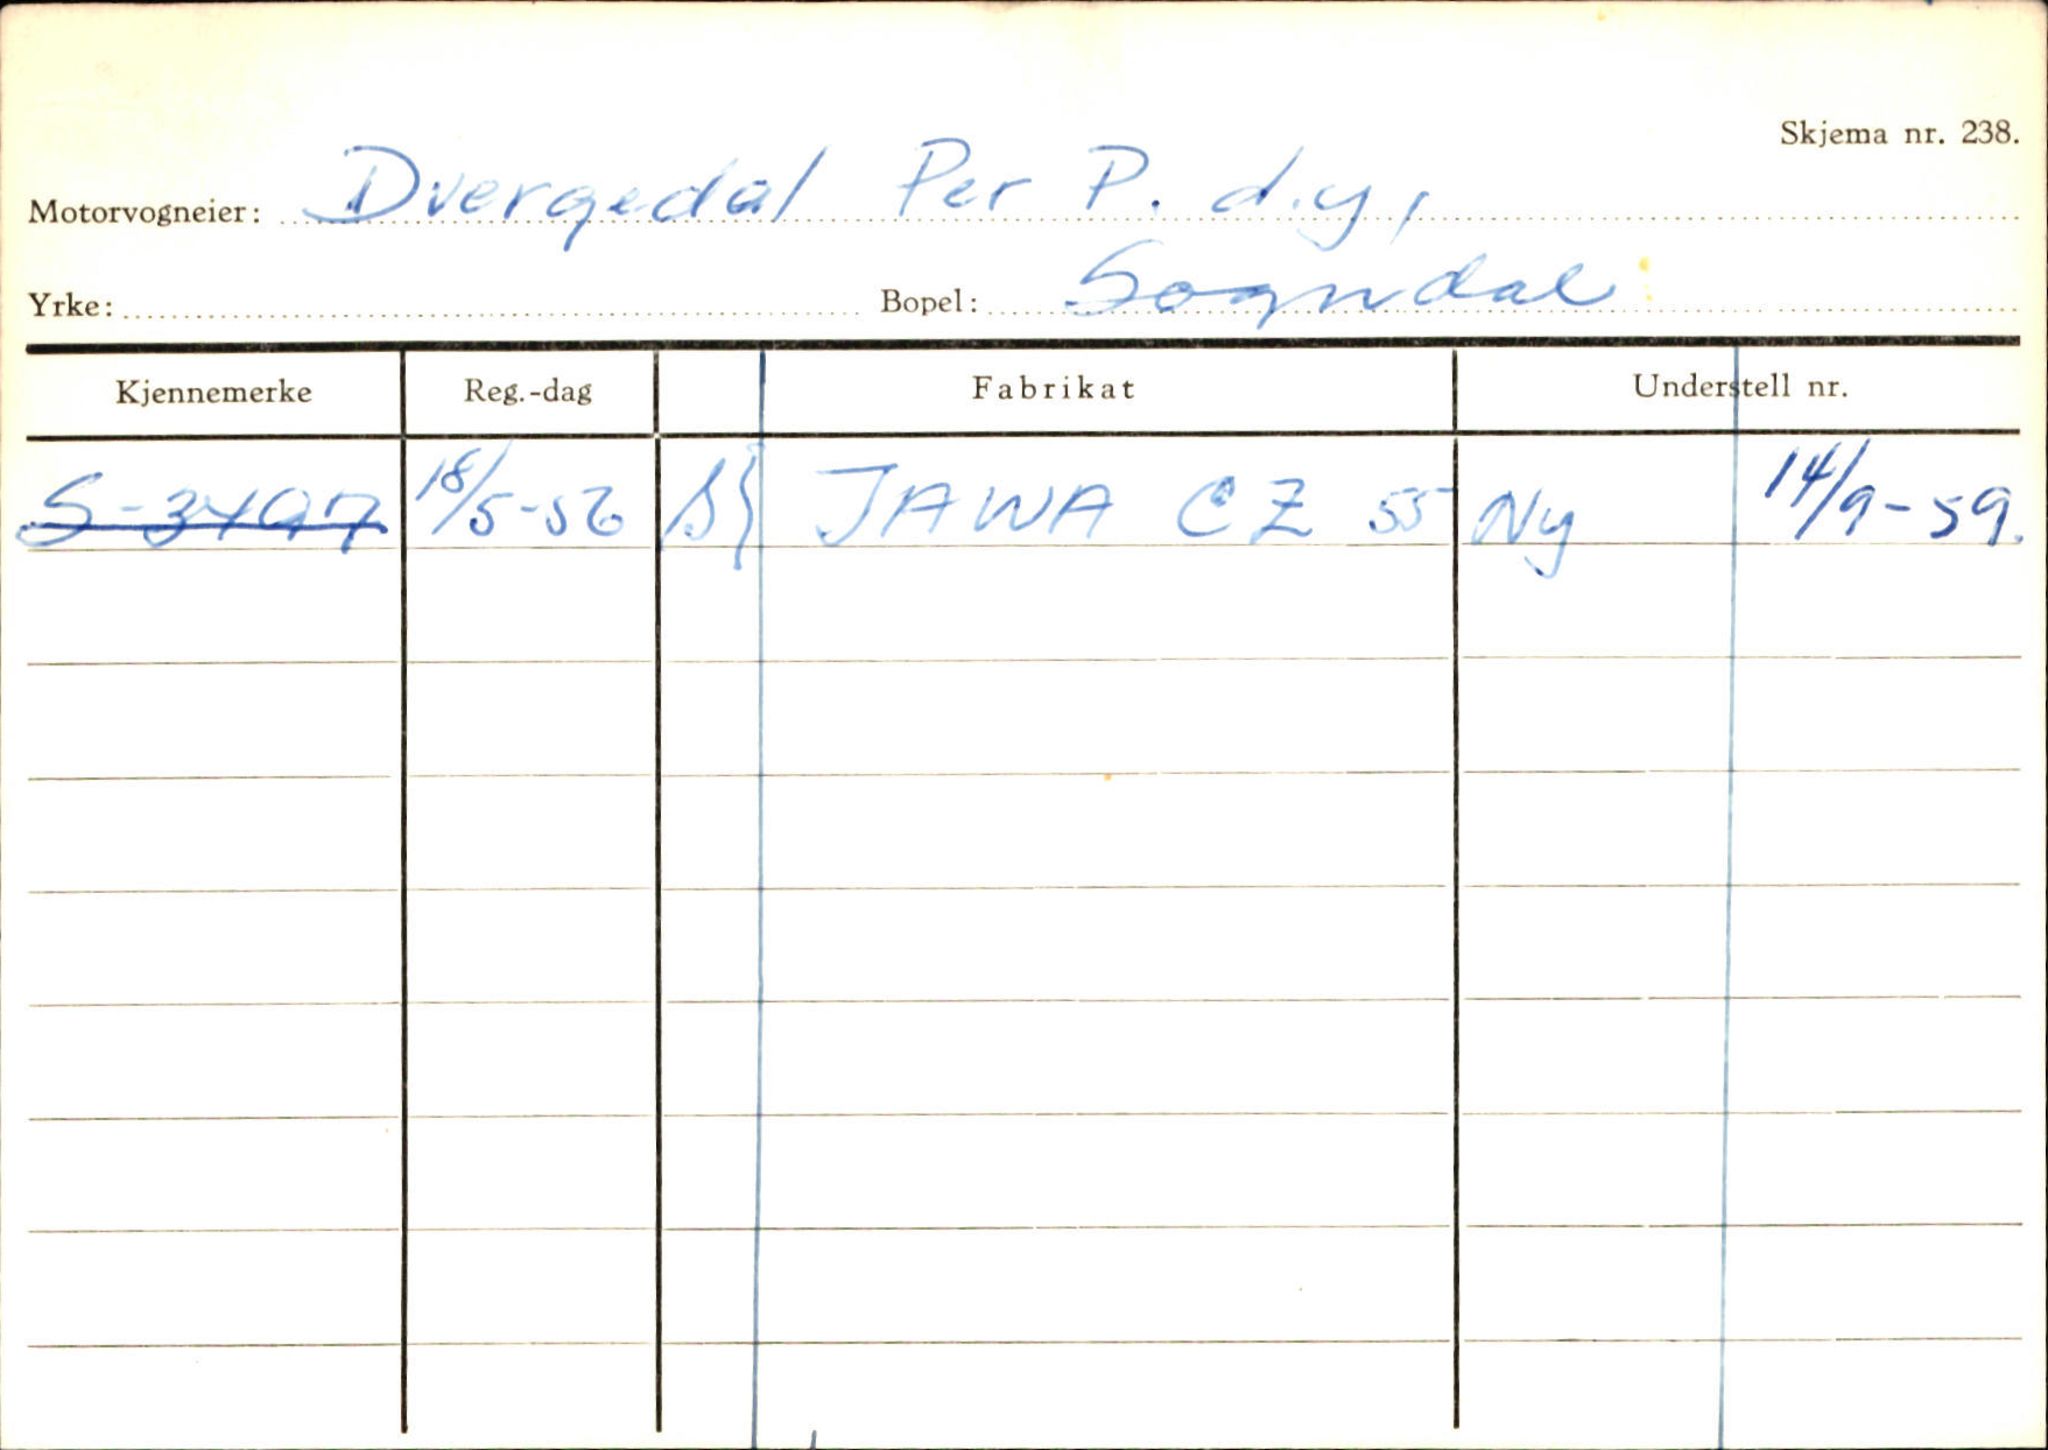 Skjema nr. 238.
Motorvogneier: Dvergedal Per P. d.y,
Yrke: Bopel: Sogndal
Kjennemerke Reg.-dag Fabrikat Understell nr.
S-3497 18/5-56 JAWA CZ 55 Ny 14/9-59.